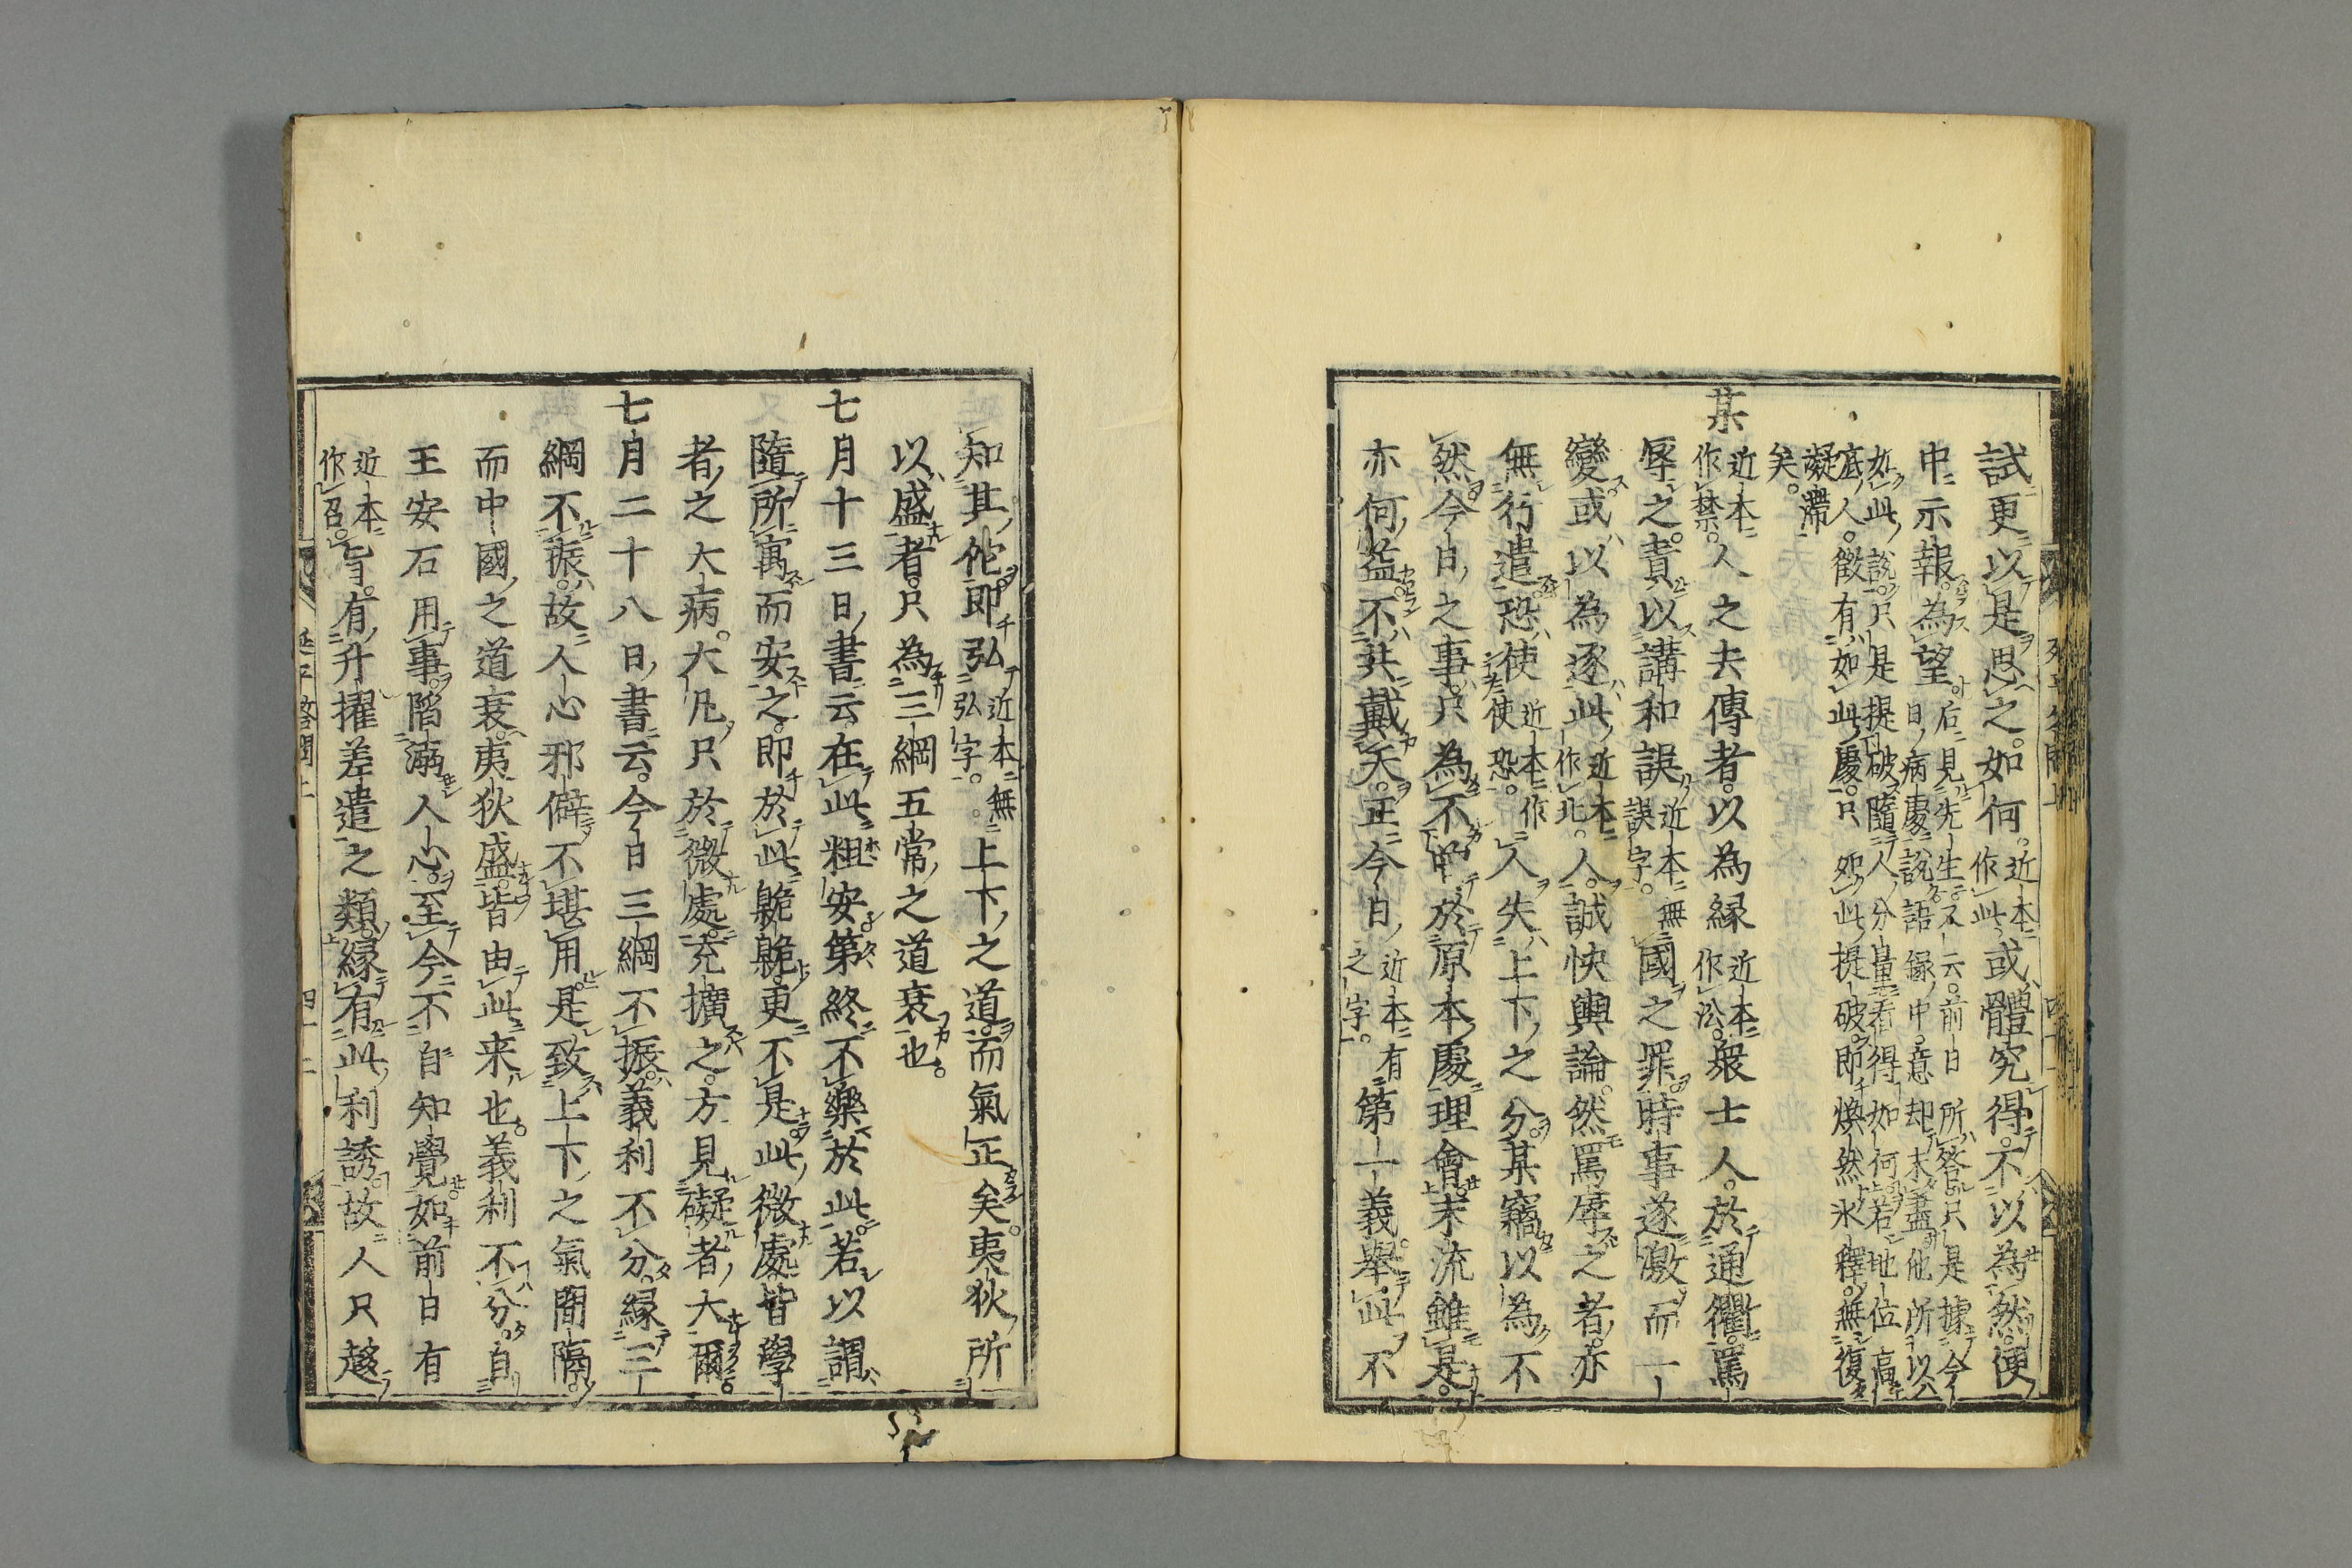 試更以是思之如何。近本作此。或體究得。不以為然。便
中示報。為望。后見先生又云。前日所答。只是據今日。病處說語錄中。意却未盡。他所以
如此。說。只是提破。隨人分量看得如何。若地位高底人。微有如此處。只如此提破。即煥然氷釋。無復凝滯
矣。
某近本作禁。人之去傳者。以為緣近本作㳂。衆士人。於通衢罵
辱之。責以講和誤近本無誤字。國之罪。時事遂激而一
變。或以為逐此近本作北。人。誠快輿論。然罵辱之者。亦
無行遣。恐使近本作使恐。人失上下之分。某竊以為不
然。今日之事。只為不曽於原本處理會。末流雖是。
亦何益。不共戴天。正今日近本有之字。第一義。舉此不
知其他。即弘近本無弘字。上下之道。而氣正矣。夷狄所
以盛者。只為三綱五常之道衰也。
七月十三日。書云。在此粗安。第終不樂於此。若以謂
隨所寓而安之。即於此臲卼。更不是此微處。皆學
者之大病。大凡只於微處。充擴之。方見礙者大爾。
七月二十八日。書云。今日三綱不振。義利不分。緣三
綱不振。故人心邪僻。不堪用。是致上下之氣間隔。
而中國之道衰。夷狄盛。皆由此来也。義利不分。自
王安石用事。陷溺人心。至今不自知覺。如前日有
近本作召。旨。有升擢差遣之類。緣有此利誘。故人只趍
延平答問上
四十二